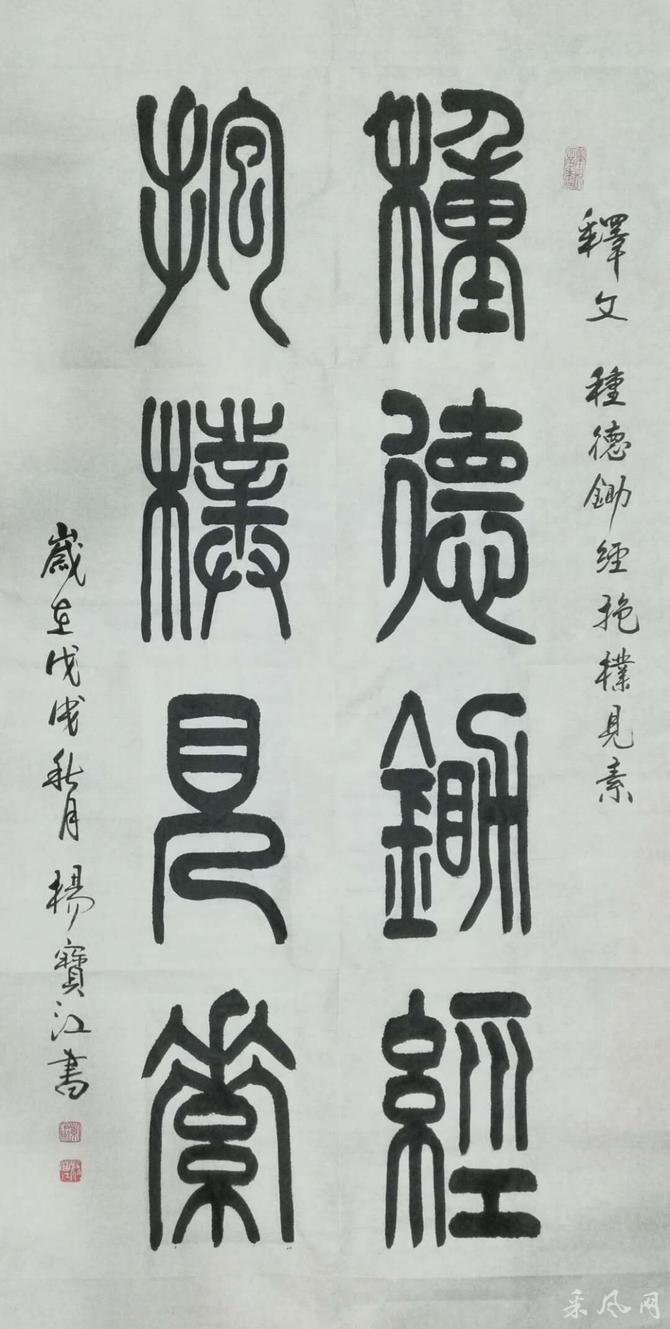 釋文 種德鋤經抱樸見素
種德鋤經
抱樸見素
歲在戊戌秋月楊寶江書
采风网